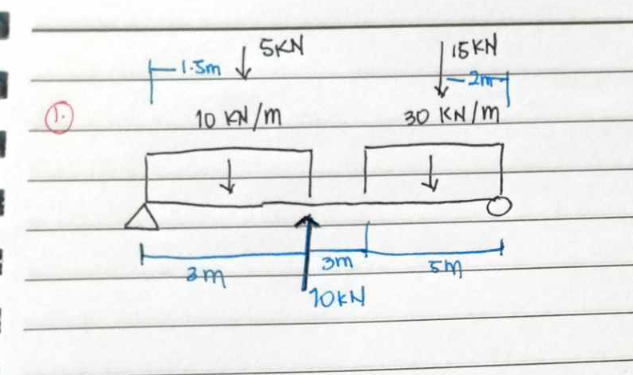 5KN
15KN
1.5m
2m
1.
10 KN/m
30 KN/m
3m
3m
5m
10KN